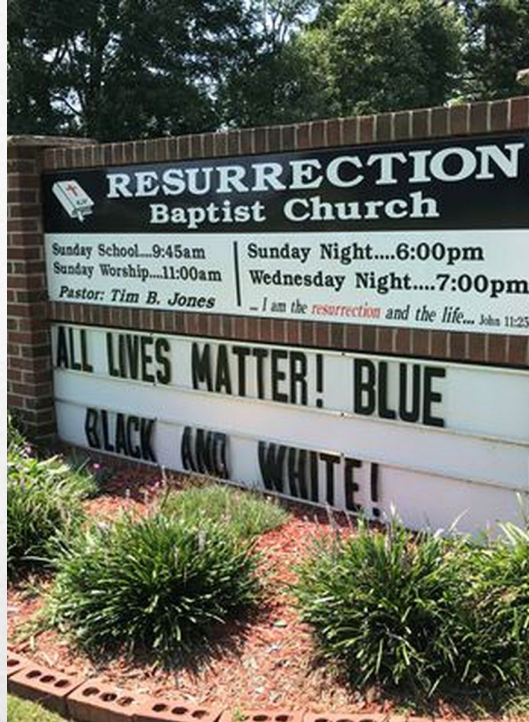 RESURRECTION
Baptist Church
Sunday School....9:45am
Sunday Worship....11:00am
Pastor: Tim B. Jones
Sunday Night....6:00pm
Wednesday Night....7:00pm
... I am the resurrection and the life... John 11:25
ALL LIVES MATTER! BLUE
BLACK AND WHITE!